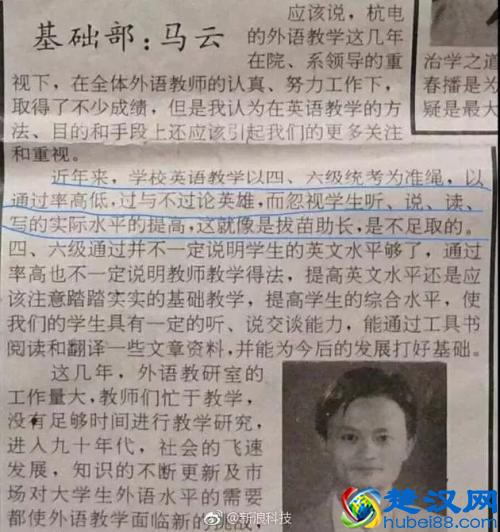 基础部：马云
应该说，杭电
的外语教学这几年
在院、系领导的重
视下，在全体外语教师的认真、努力工作下，
取得了不少成绩，但是我认为在英语教学的方
法、目的和手段上还应该引起我们的更多关注
和重视。
近年来，学校英语教学以四、六级统考为准绳，以
通过率高低，过与不过论英雄，而忽视学生听、说、读、
写的实际水平的提高，这就像是拔苗助长，是不足取的。
四、六级通过并不一定说明学生的英文水平够了，通过
率高也不一定说明教师教学得法，提高英文水平还是应
该注意踏踏实实的基础教学，提高学生的综合水平，使
我们的学生具有一定的听、说交谈能力，能通过工具书
阅读和翻译一些文章资料，并能为今后的发展打好基础。
这几年，外语教研室的
工作量大，教师们忙于教学，
没有足够时间进行教学研究，
进入九十年代，社会的飞速
发展，知识的不断更新及市
场对大学生外语水平的需要
都使外语教学面临新的挑战，
治学之道
春播是为
疑是最大
@新浪科技
楚汉网
hubei88.com